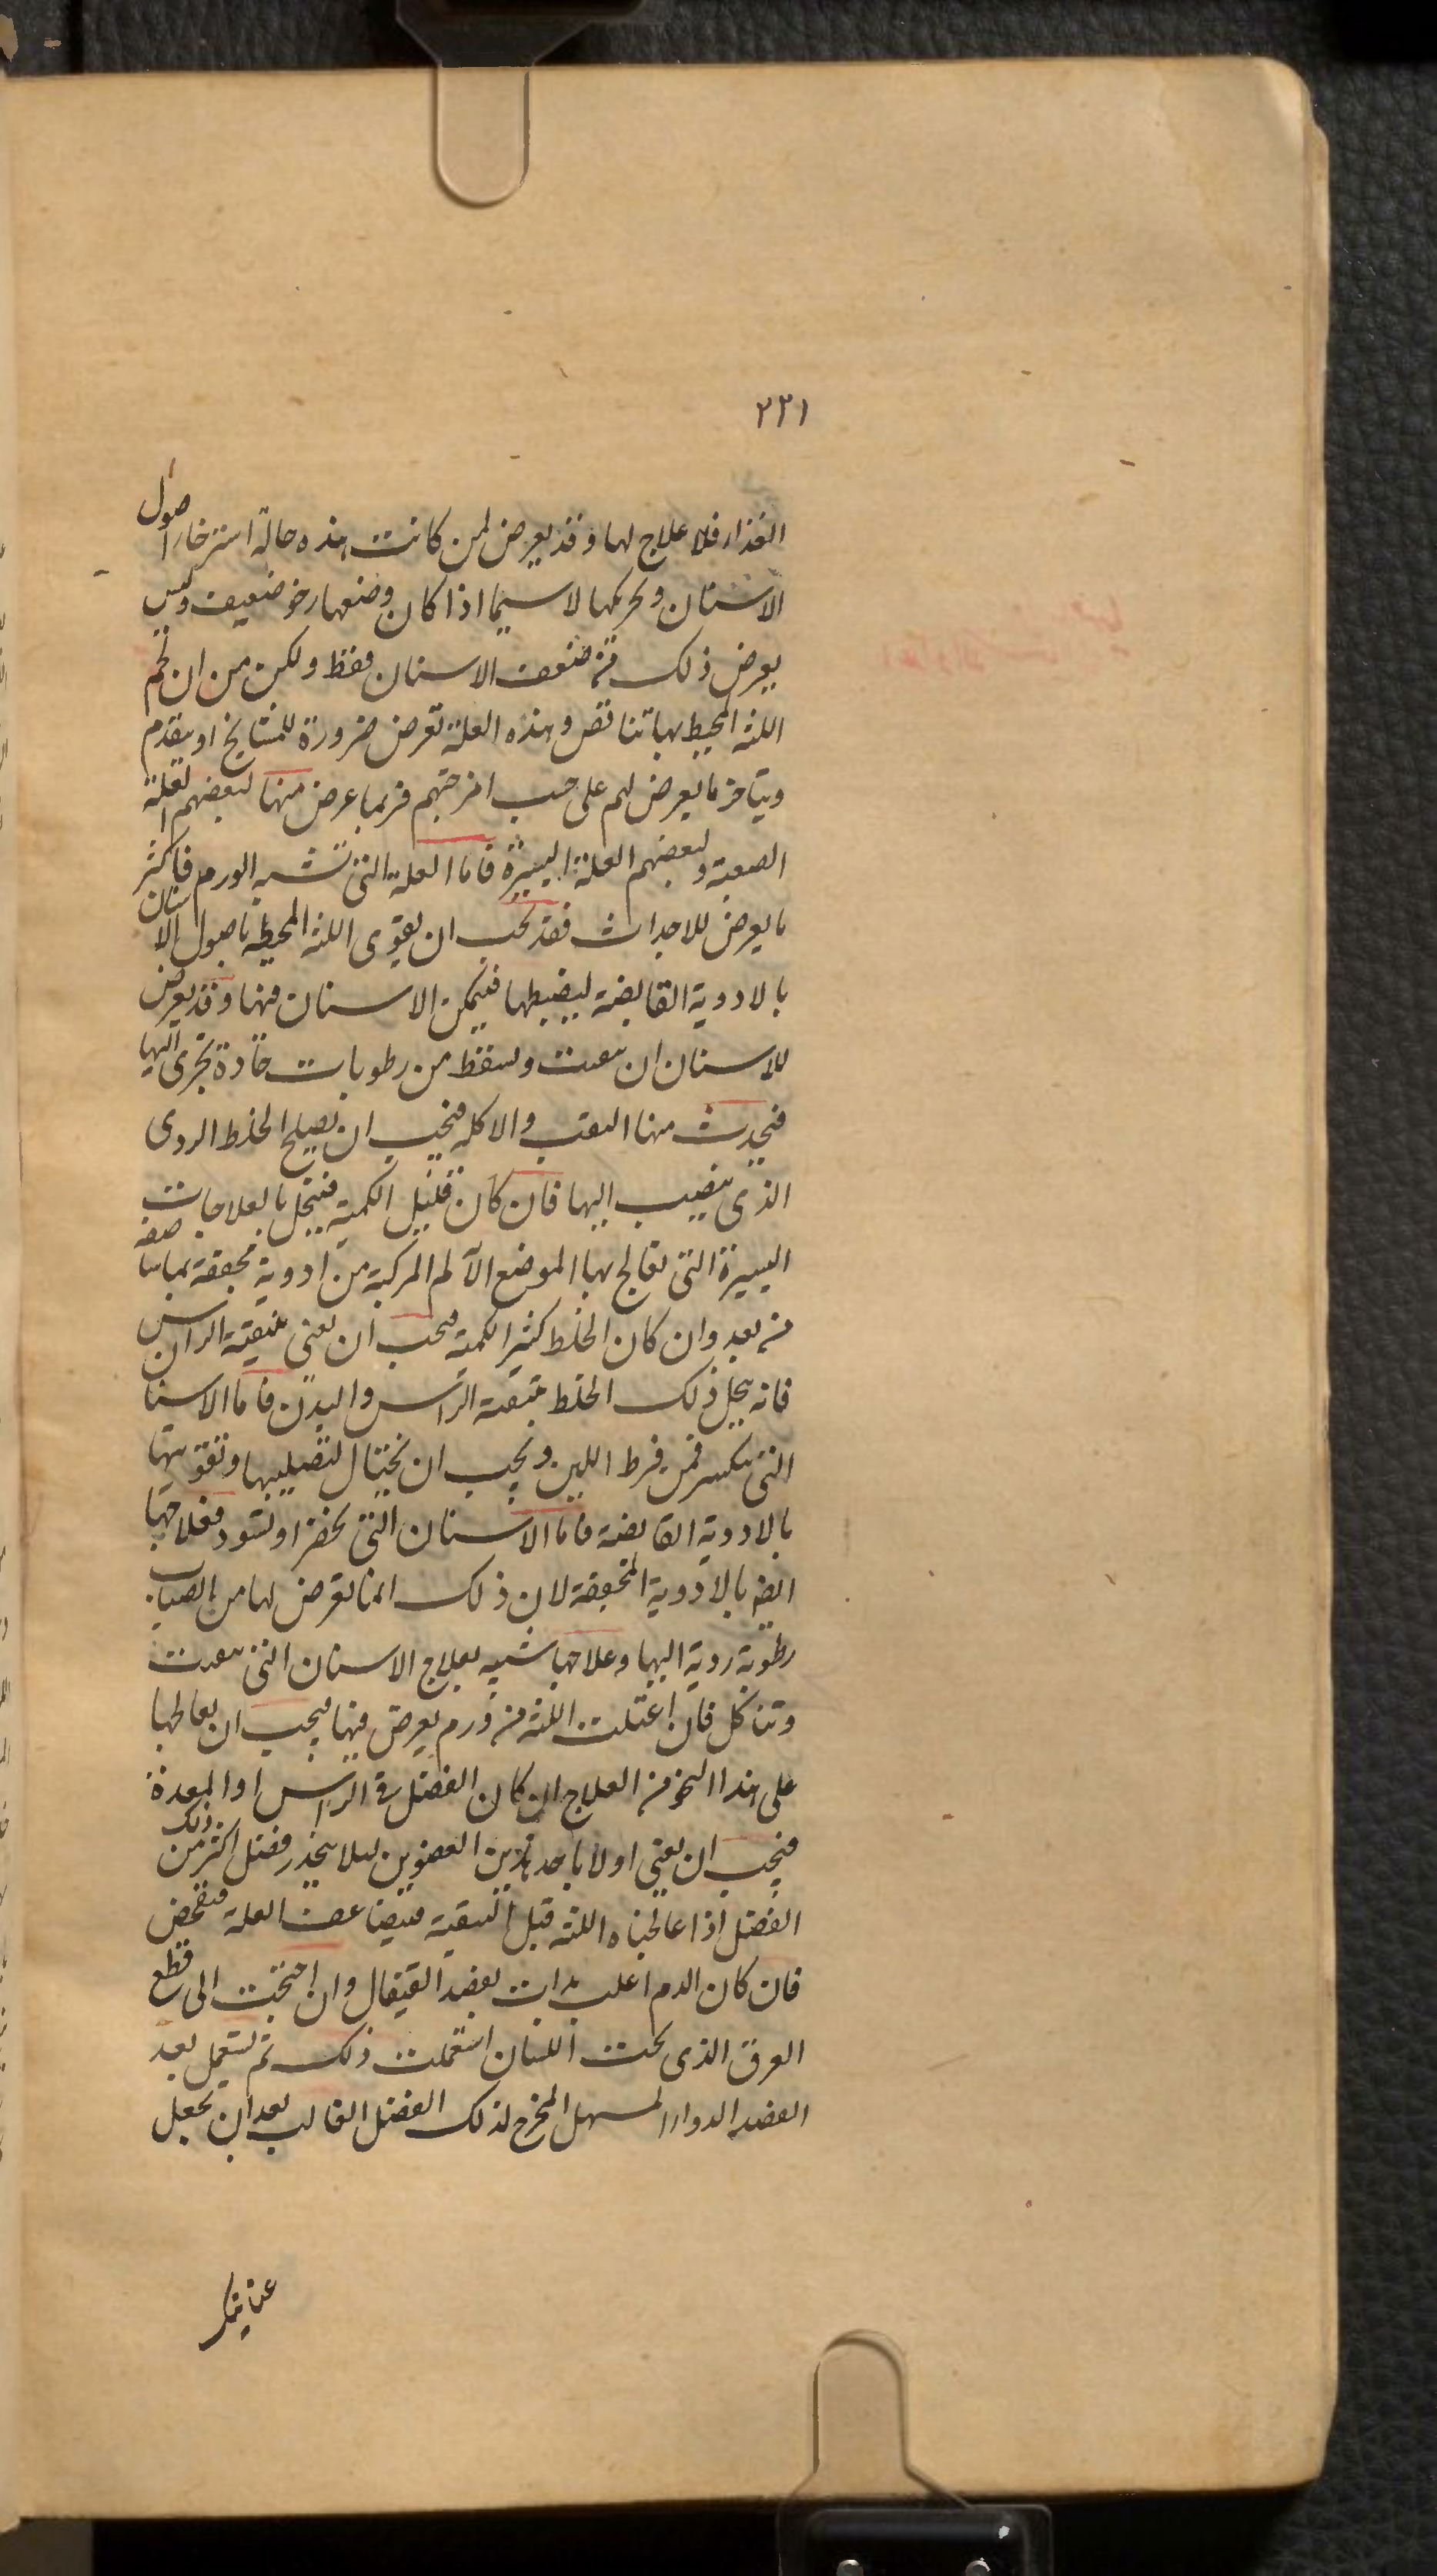 ٢٢١
الغذاء فلا علاج لها وقد يعرض لمن كانت هذه حالة استرخاء اصول
الاسنان وتحريكها لا سيما اذا كان وضعها رخو ضعيف وليس
يعرض ذلك من ضعف الاسنان فقط ولكن من ان لحم
اللثه المحيط بها تناقص وهذه العلة تعرض ضرورة للمشايخ او يتقدم
ويتاخر ما يعرض لهم على حسب امزجتهم فربما عرض منها لبعضهم العلة
الصعبة ولبعضهم العلة اليسيرة فاما العلة التى تشبه الورم فاكثر
ما يعرض للاحداث فقد يجب ان يقوى اللثه المحيطه باصول الاسنان
بالادوية القابضة ليضبطها فيمكن الاسنان منها وقد يعرض
للاسنان ان تتفتت وتسقط من رطوبات حادة تجرى اليها
فيحدث منها الثقب والاكله فيجب ان يصلح الخلط الردى
الذى ينصب اليها فان كان قليل الكمية فينحل بالعلاجات
اليسيرة التى تعالج بها الموضع الآلم المركبة من ادوية مجففة بما سنصفه
من بعد وان كان الخلط كثير الكمية فيجب ان يعنى بتنقية الراس
فانه ينحل ذلك الخلط بتنقية الراس والبدن فاما الاسنان
التى تنكسر فمن فرط اللين ويجب ان يحتال لتصليبها وتقويتها
بالادوية القابضة فاما الاسنان التى تخضر او تسود فعلاجها
ايضا بالادوية المجففة لان ذلك انما يعرض لها من انصباب
رطوبة ردية اليها وعلاجها شبيه بعلاج الاسنان التى تتفتت
وتتاكل فان اعتلت اللثه من ورم يعرض فيها فيجب ان يعالجها
على هذا النحو من العلاج ان كان الفضل فى الراس او المعدة
فيجب ان يعنى اولا باحد هذين العضوين ليلا ينحدر فضل اكثر من ذلك
الفضل اذا عالجناه اللثه قبل التنقية فيتضاعف العلة فتفحص
فان كان الدم اغلب بدات بفصد القيفال وان احتجت الى قطع
العرق الذى تحت اللسان استعملت ذلك ثم تستعمل بعد
الفصد الدواء المسهل المخرج لذلك الفضل الغالب بعد ان تجعل